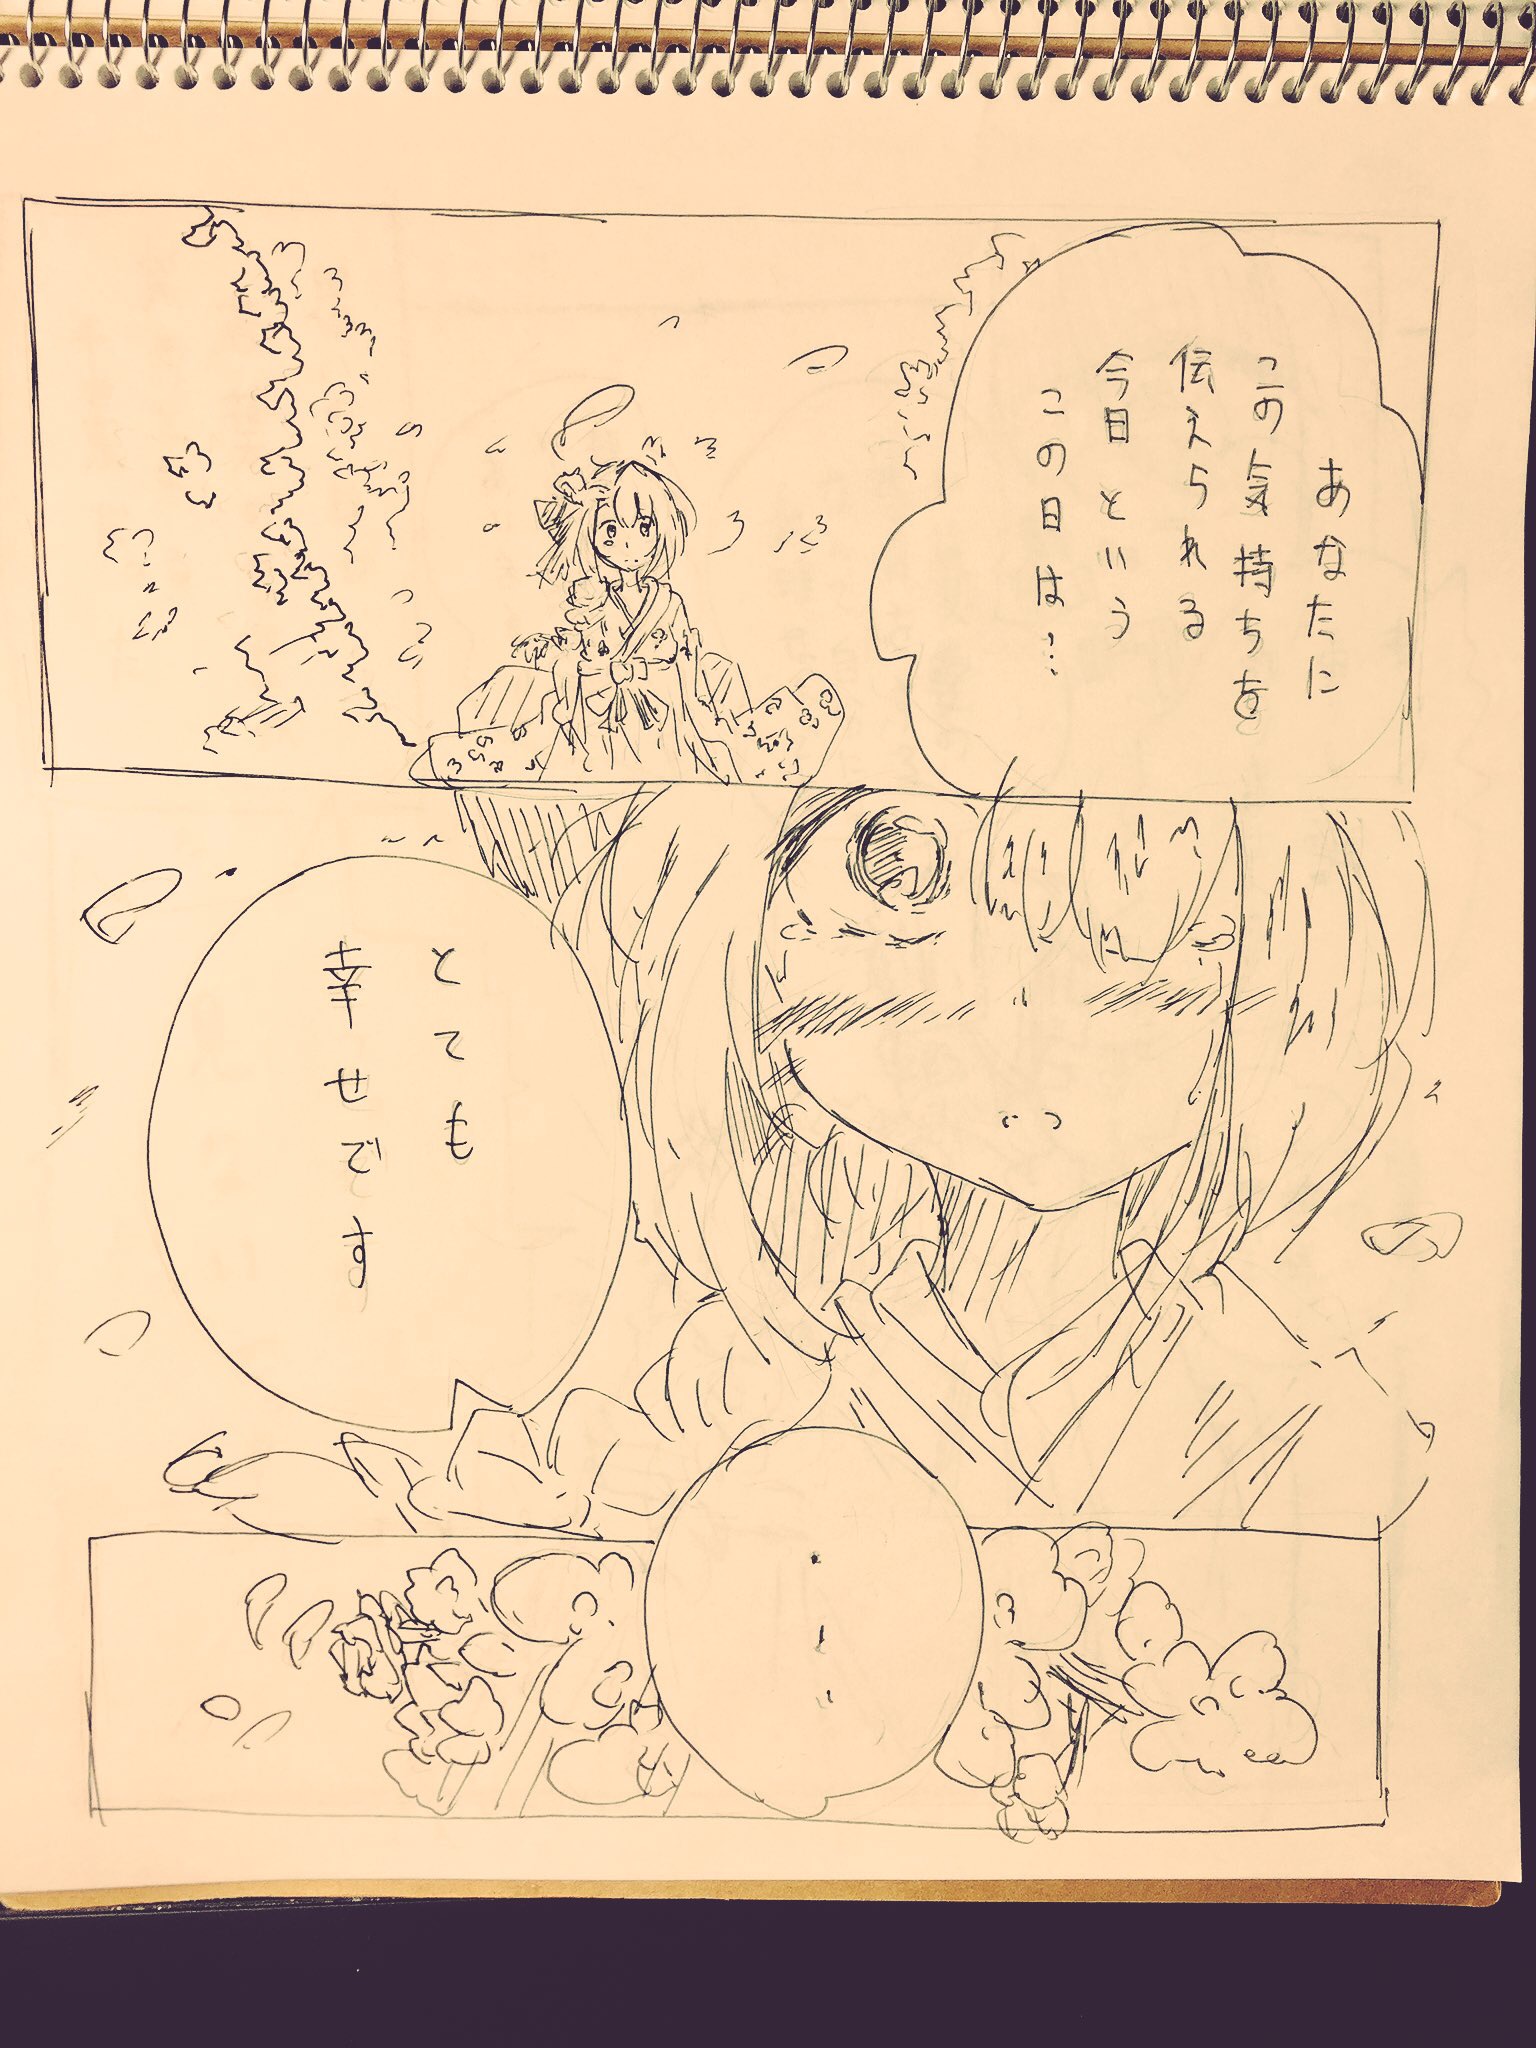 あなたに
この気持ちを
伝えられる
今日という
この日は…
とても
幸せです